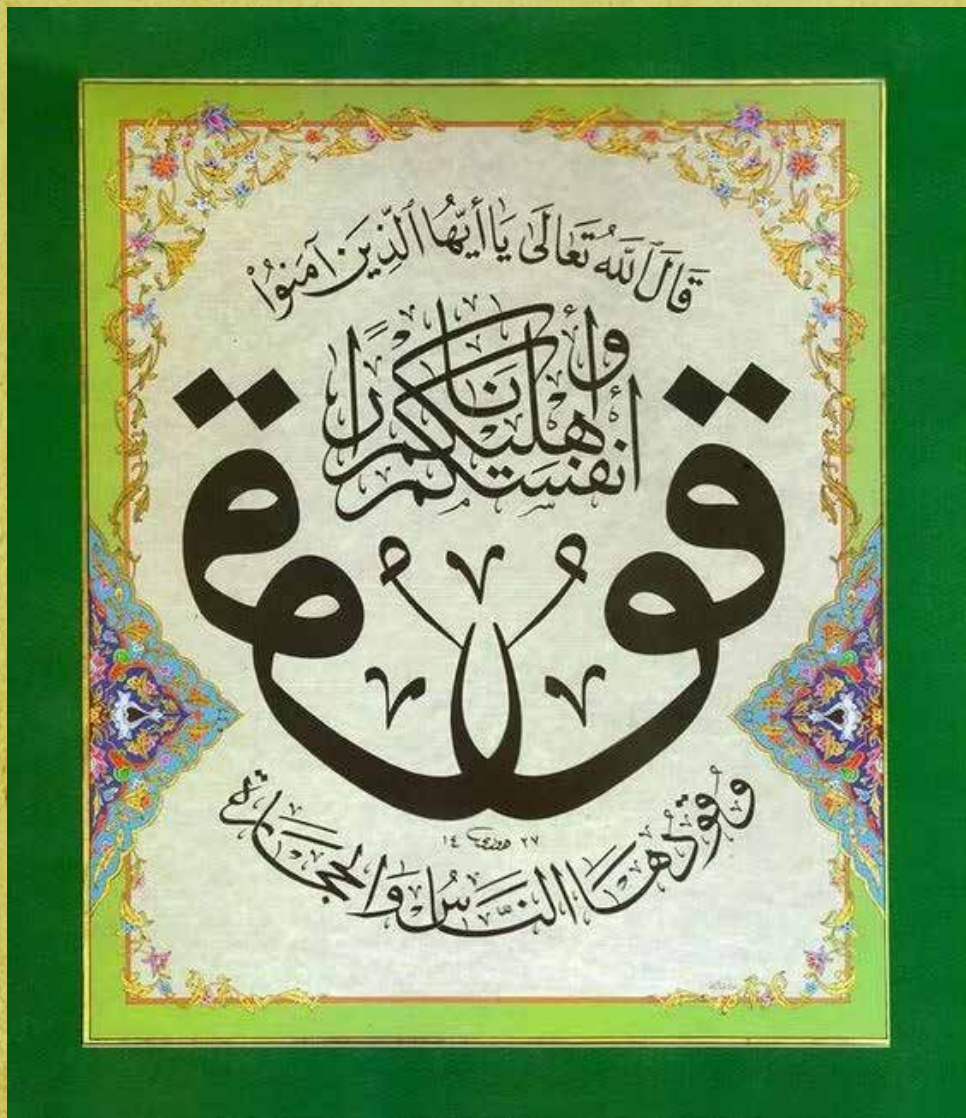 قَالَ ٱللَّهُ تَعَالَى يَا أَيُّهَا ٱلَّذِينَ آمَنُوْا
قُوا
أَنفُسَكُمْ
وَأَهْلِيكُمْ نَارًا
وَقُودُهَا النَّاسُ وَالْحِجَارَةُ
١٤ ٢٧